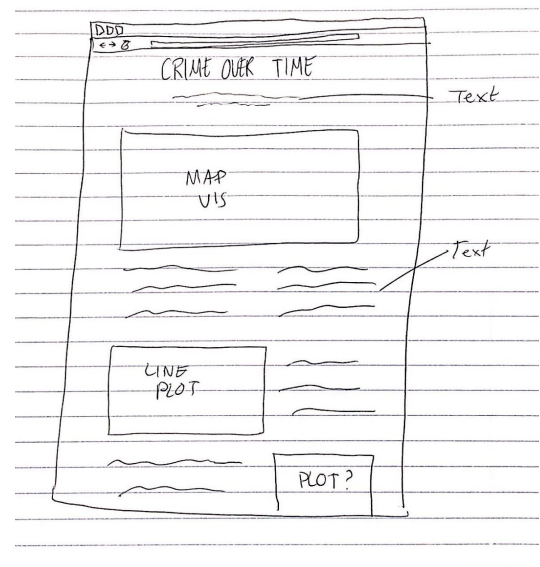 CRIME OVER TIME
Text
MAP
VIS
Text
LINE
PLOT
PLOT?